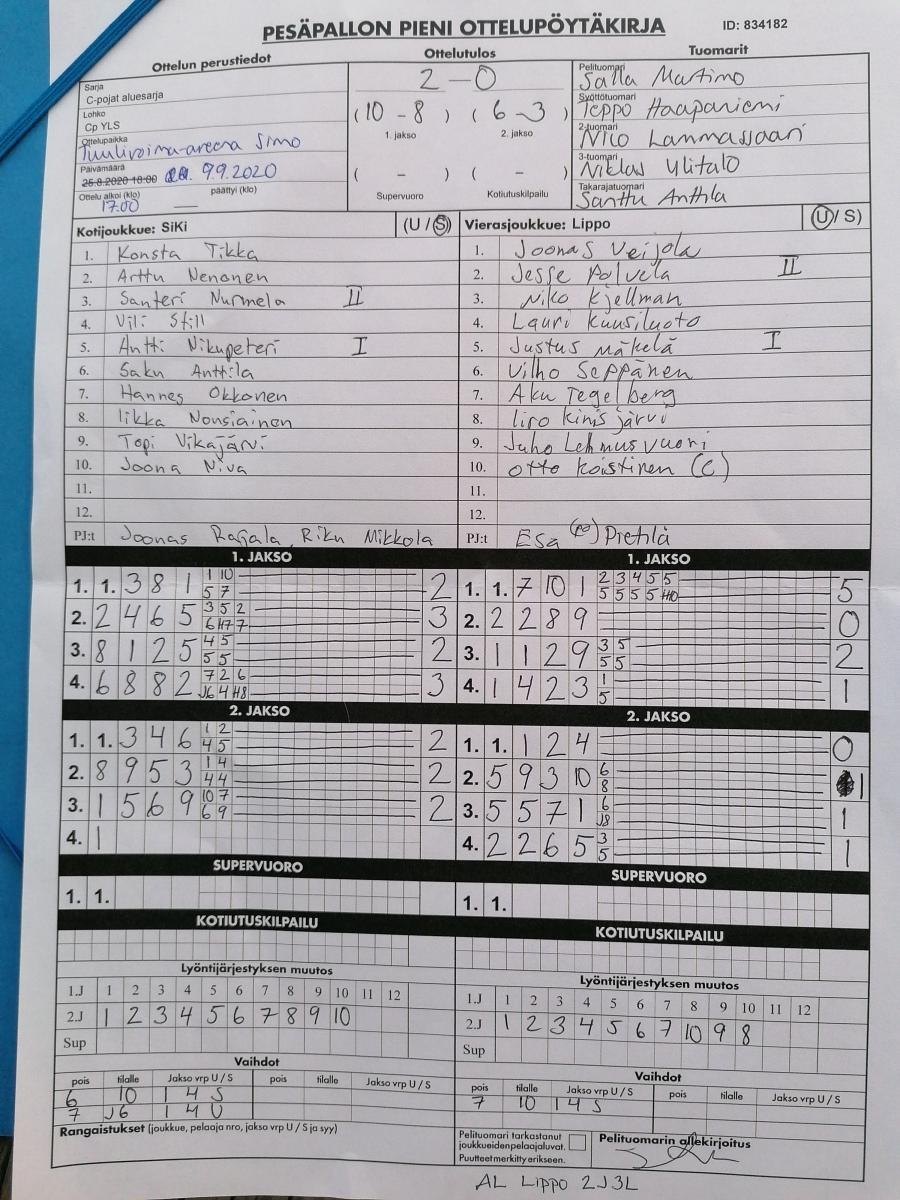 PESÄPALLON PIENI OTTELUPÖYTÄKIRJA
ID: 834182
Ottelun perustiedot
Sarja
C-pojat aluesarja
Lohko
Cp YLS
Ottelupaikka
Tuulivoima-areena Simo
Päivämäärä
25.8.2020 18:00 9.9.2020
Ottelu alkoi (klo) päättyi (klo)
17.00 —
Ottelutulos
2 - 0
(10 - 8) (6 - 3)
1. jakso 2. jakso
( - ) ( - )
Supervuoro Kotiutuskilpailu
Tuomarit
Pelituomari
Salla Martimo
Syöttötuomari
Teppo Haapaniemi
2-tuomari
Nico Lammassaari
3-tuomari
Niklas Ylitalo
Takarajatuomari
Santtu Anttila
Kotijoukkue: SiKi (U / S)
1. Konsta Tikka
2. Arttu Nenonen
3. Santeri Nurmela II
4. Vili Still
5. Antti Nikupeteri I
6. Saku Anttila
7. Hannes Okkonen
8. Iikka Nousiainen
9. Topi Vikajärvi
10. Joona Niva
11.
12.
PJ:t Joonas Rajala, Riku Mikkola
Vierasjoukkue: Lippo (U / S)
1. Joonas Veijola
2. Jesse Polvela II
3. Niko Kjellman
4. Lauri Kuusiluoto
5. Justus Mäkelä I
6. Vilho Seppänen
7. Aku Tegelberg
8. Iiro Kinisjärvi
9. Juho Lehmusvuori
10. Otto Koistinen (C)
11.
12.
PJ:t Esa (po) Pietilä
1. JAKSO
1. 1. 3 8 1 1 10 2
5 7
2. 2 4 6 5 3 5 2 3
6 H7 7
3. 8 1 2 5 4 5 2
5 5
4. 6 8 8 2 7 2 6 3
J6 4 H8
1. JAKSO
1. 1. 7 10 1 2 3 4 5 5 5
5 5 5 5 H10
2. 2 2 8 9 0
3. 1 1 2 9 3 5 2
5 5
4. 1 4 2 3 1 1
5
2. JAKSO
1. 1. 3 4 6 1 2 2
4 5
2. 8 9 5 3 1 4 2
4 4
3. 1 5 6 9 10 7 2
6 9
4. 1
2. JAKSO
1. 1. 1 2 4 0
2. 5 9 3 10 6 1
8
3. 5 5 7 1 6 1
J8
4. 2 2 6 5 3 1
5
SUPERVUORO
1. 1.
SUPERVUORO
1. 1.
KOTIUTUSKILPAILU
KOTIUTUSKILPAILU
Lyöntijärjestyksen muutos
1.J 1 2 3 4 5 6 7 8 9 10 11 12
2.J 1 2 3 4 5 6 7 8 9 10
Sup
Lyöntijärjestyksen muutos
1.J 1 2 3 4 5 6 7 8 9 10 11 12
2.J 1 2 3 4 5 6 7 10 9 8
Sup
Vaihdot
pois tilalle Jakso vrp U / S pois tilalle Jakso vrp U / S
6 10 1 4 S
7 J6 1 4 U
Vaihdot
pois tilalle Jakso vrp U / S pois tilalle Jakso vrp U / S
7 10 1 4 S
Rangaistukset (joukkue, pelaaja nro, jakso vrp U / S ja syy)
Pelituomari tarkastanut
joukkueiden pelaajaluvat.
Puutteet merkitty erikseen.
Pelituomarin allekirjoitus
AL Lippo 2J3L